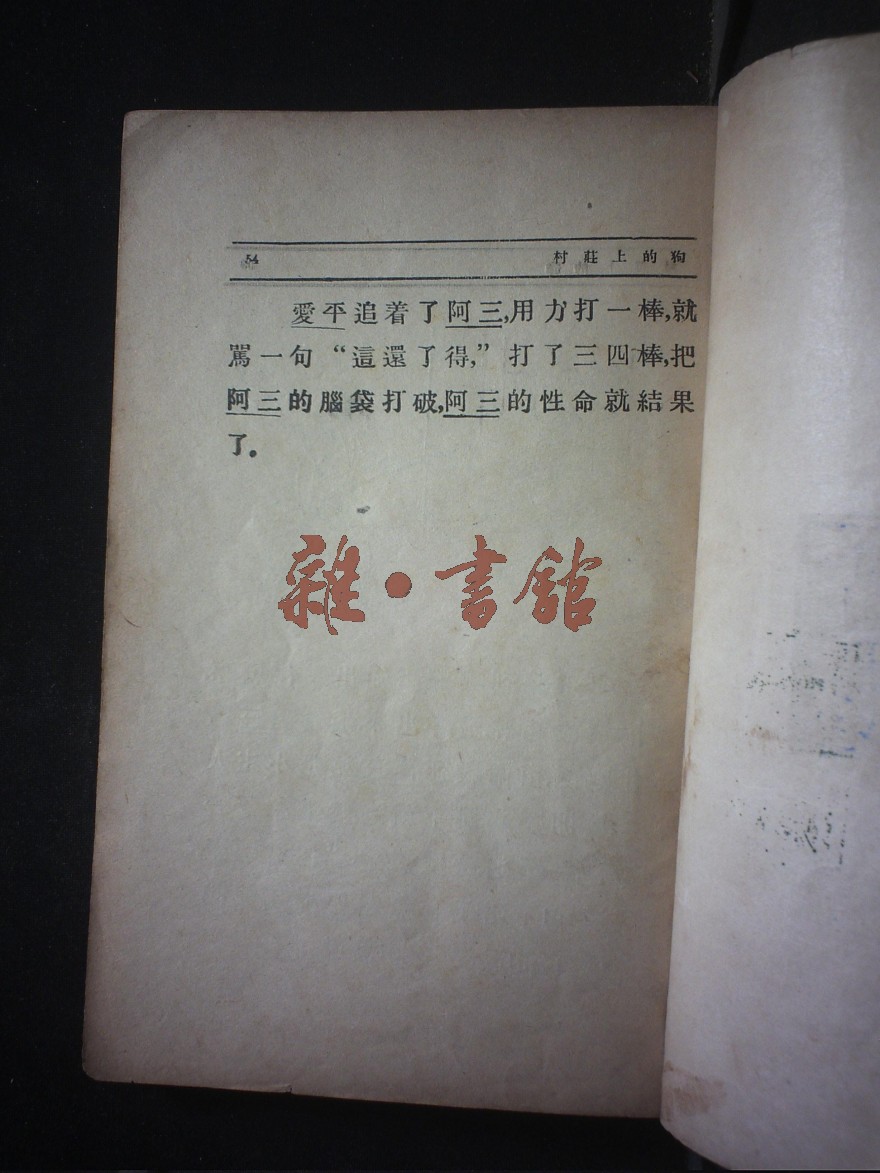 54 村莊上的狗
愛平追着了阿三,用力打一棒,就
罵一句“這還了得,”打了三四棒,把
阿三的腦袋打破,阿三的性命就結果
了。
雜·書館